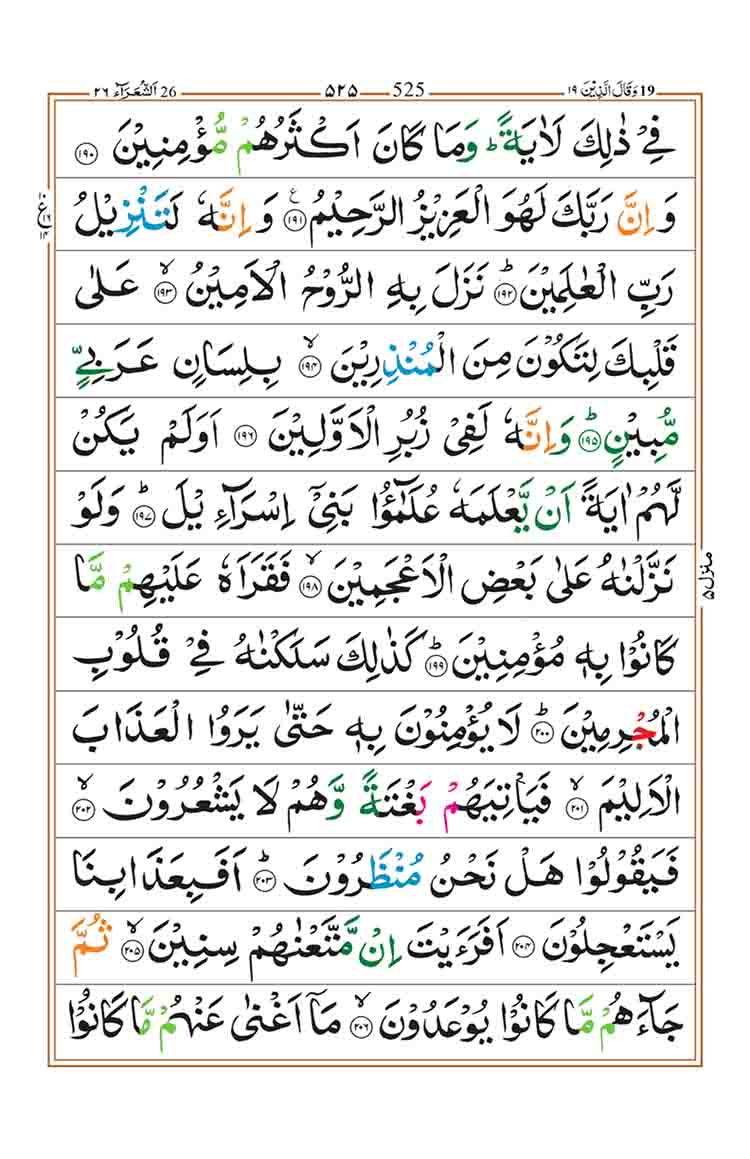 26 اَلشُّعَرَآء ٢٦ 525 ٥٢٥ 19 وَقَالَ الَّذِيْنَ ١٩
فِيْ ذٰلِكَ لَاٰيَةً ؕ وَمَا كَانَ اَكْثَرُهُمْ مُّؤْمِنِيْنَ ١٩٠
وَ اِنَّ رَبَّكَ لَهُوَ الْعَزِيْزُ الرَّحِيْمُ ١٩١ ع وَ اِنَّهٗ لَتَنْزِيْلُ
رَبِّ الْعٰلَمِيْنَ ١٩٢ ؕ نَزَلَ بِهِ الرُّوْحُ الْاَمِيْنُ ١٩٣ ۙ عَلٰى
قَلْبِكَ لِتَكُوْنَ مِنَ الْمُنْذِرِيْنَ ١٩٤ ۙ بِلِسَانٍ عَرَبِيٍّ
مُّبِيْنٍ ١٩٥ ؕ وَاِنَّهٗ لَفِيْ زُبُرِ الْاَوَّلِيْنَ ١٩٦ اَوَلَمْ يَكُنْ
لَّهُمْ اٰيَةً اَنْ يَّعْلَمَهٗ عُلَمٰٓؤُا بَنِيْٓ اِسْرَآءِيْلَ ١٩٧ ؕ وَلَوْ
نَزَّلْنٰهُ عَلٰى بَعْضِ الْاَعْجَمِيْنَ ١٩٨ ۙ فَقَرَاَهٗ عَلَيْهِمْ مَّا
كَانُوْا بِهٖ مُؤْمِنِيْنَ ١٩٩ ؕ كَذٰلِكَ سَلَكْنٰهُ فِيْ قُلُوْبِ
الْمُجْرِمِيْنَ ٢٠٠ ؕ لَا يُؤْمِنُوْنَ بِهٖ حَتّٰى يَرَوُا الْعَذَابَ
الْاَلِيْمَ ٢٠١ ۙ فَيَاْتِيَهُمْ بَغْتَةً وَّهُمْ لَا يَشْعُرُوْنَ ٢٠٢ ۙ
فَيَقُوْلُوْا هَلْ نَحْنُ مُنْظَرُوْنَ ٢٠٣ ؕ اَفَبِعَذَابِنَا
يَسْتَعْجِلُوْنَ ٢٠٤ اَفَرَءَيْتَ اِنْ مَّتَّعْنٰهُمْ سِنِيْنَ ٢٠٥ ۙ ثُمَّ
جَآءَهُمْ مَّا كَانُوْا يُوْعَدُوْنَ ٢٠٦ ۙ مَآ اَغْنٰى عَنْهُمْ مَّا كَانُوْا
منزل ٥